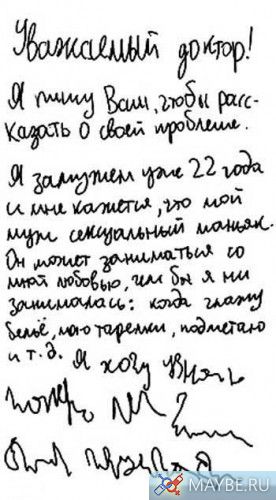 Уважаемый доктор!
Я пишу Вам, чтобы расс-
казать о своей проблеме.
Я замужем уже 22 года
и мне кажется, что мой
муж сексуальный маньяк.
Он может заниматься со
мной любовью, чем бы я ни
занималась: когда глажу
бельё, мою тарелки, подметаю
и т.д. Я хочу узнать
MAYBE.RU